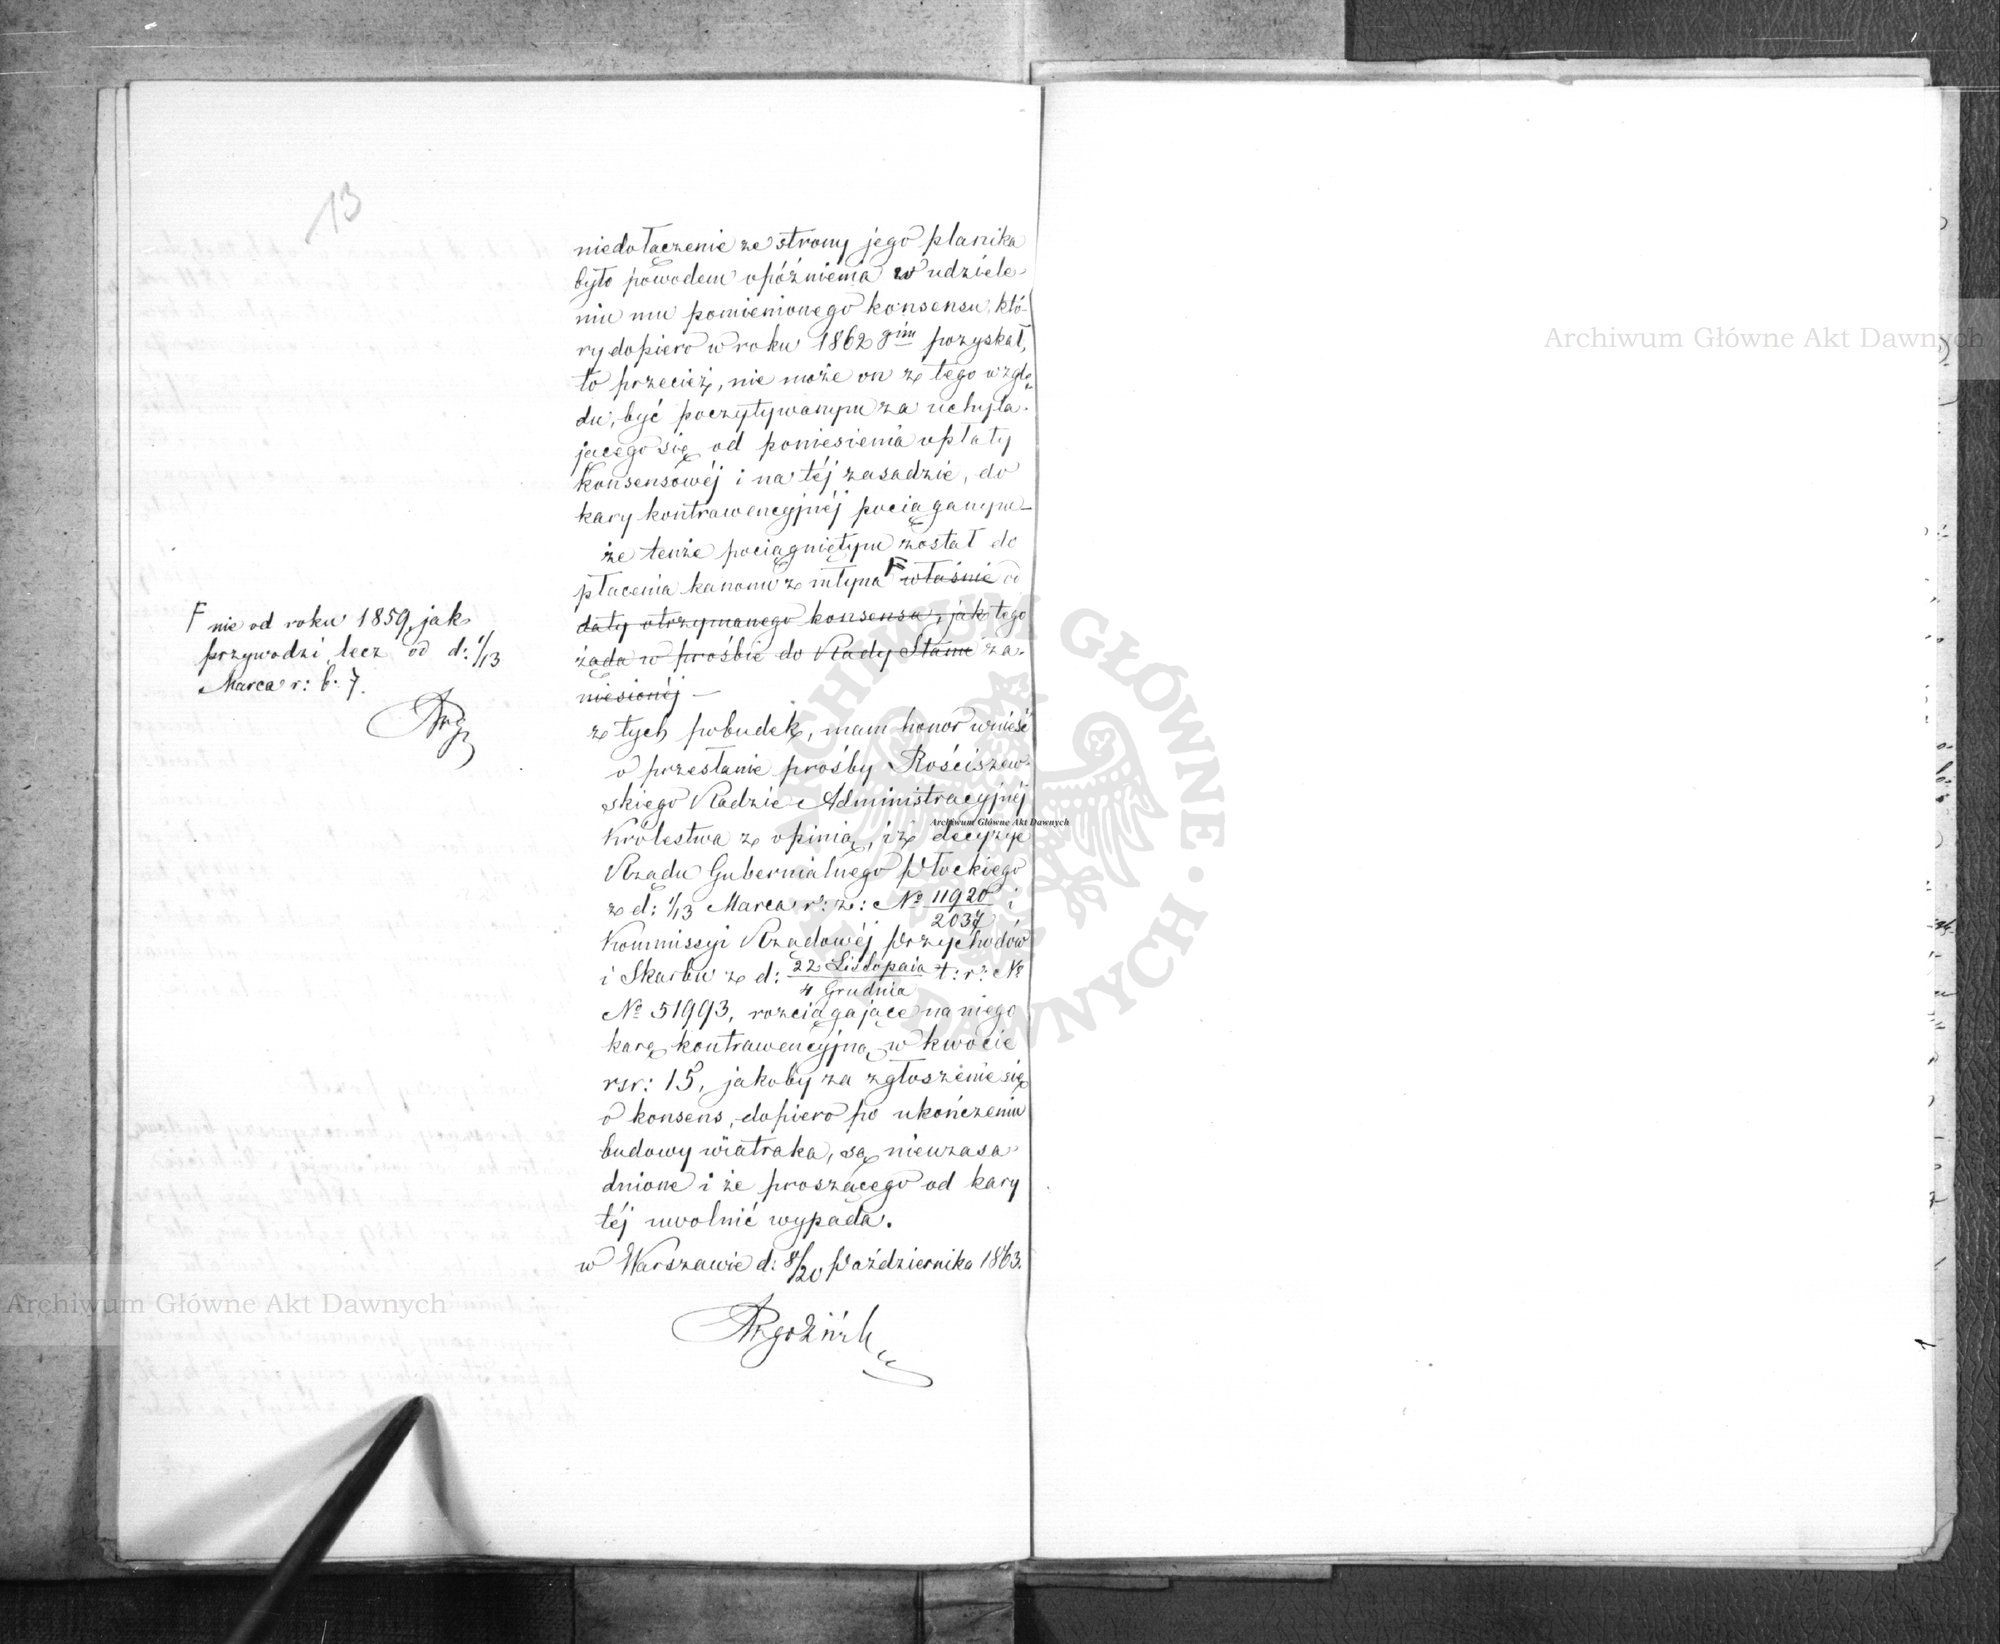 13
niedołączenie ze strony jego planika
było powodem opóźnienia w udziele-
niu mu pomienionego konsensu, któ-
ry dopiero w roku 1862 gim pozyskał,
to przecież, nie może on z tego wzglę-
du, być poczytywanym za uchyla-
jącego się od poniesienia opłaty
konsensowéj i na téj zasadzie, do
kary kontrawencyjnéj pociąganym
że tenże pociągniętym został do
płacenia kanonu z młyna F właśnie od
daty otrzymanego konsensu, jak tego
żąda w prośbie do Rady Stanu za-
niesionéj —
F nie od roku 1859, jak
przywodzi lecz od d: 1/13
Marca r: b.
z tych pobudek, mam honor wnieść
o przesłanie prośby Rościszew-
skiego Radzie Administracyjnéj
Królestwa z opinią, iż decyzye
Rządu Gubernialnego Płockiego
z d: 1/13 Marca r: z: № 11920/2037 i
Kommissyi Rządowéj Przychodów
i Skarbu z d: 22 Listopada/4 Grudnia t: r: №
№ 51993, rozciągające na niego
karę kontrawencyjną w kwocie
rsr: 15, jakoby za zgłoszenie się
o konsens, dopiero po ukończeniu
budowy wiatraka, są nieuzasa-
dnione i że proszącego od kary
téj uwolnić wypada.
w Warszawie d: 8/20 Października 1863.
Archiwum Główne Akt Dawnych
Archiwum Główne Akt Dawnych
Archiwum Główne Akt Dawnych
ARCHIWUM GŁÓWNE AKT DAWNYCH